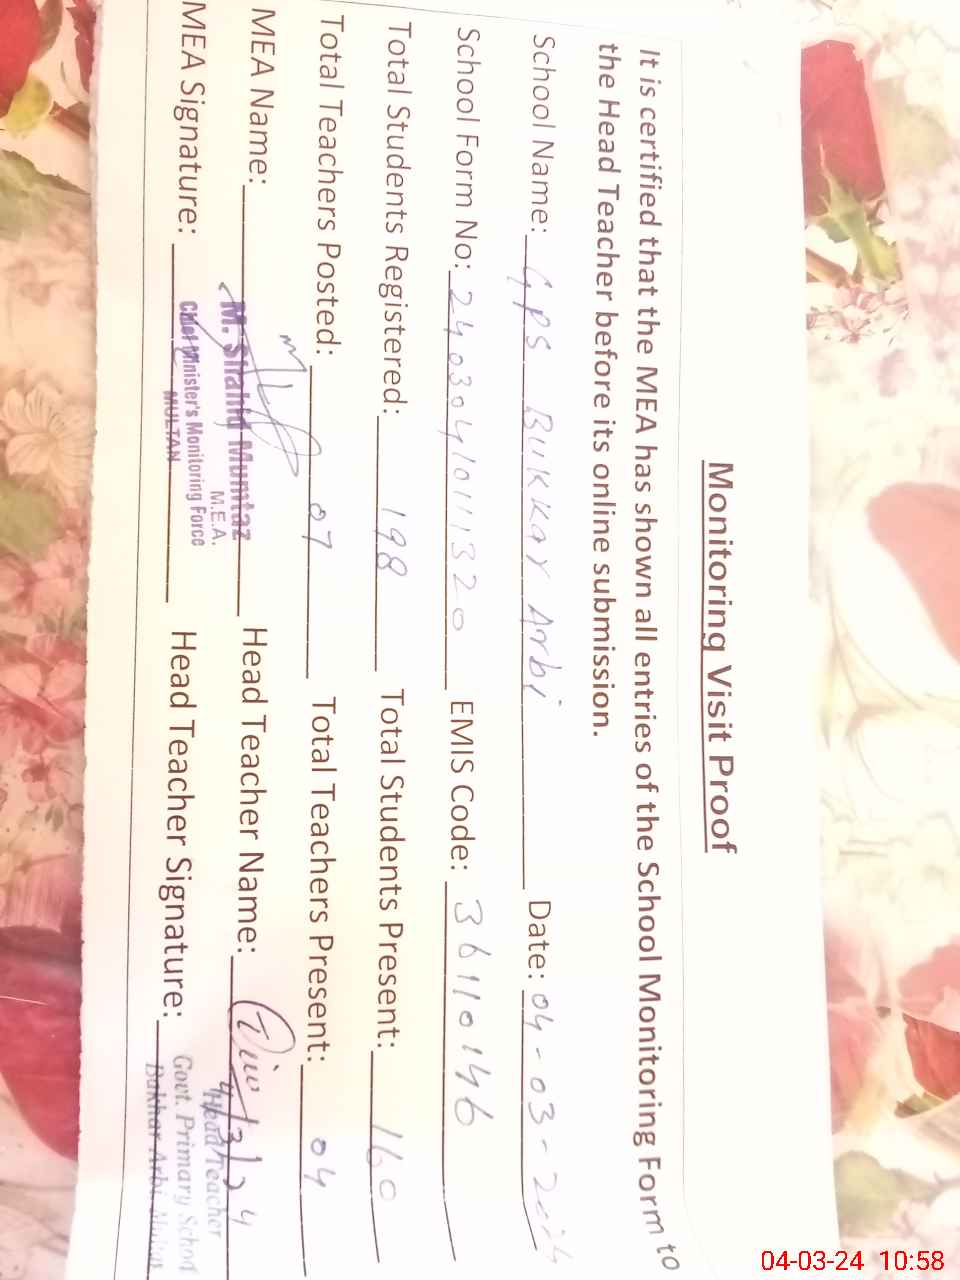 Monitoring Visit Proof
It is certified that the MEA has shown all entries of the School Monitoring Form to
the Head Teacher before its online submission.
School Name: GPS Bukkar Arbi Date: 04-03-2024
School Form No: 2403040101320 EMIS Code: 36110146
Total Students Registered: 198 Total Students Present: 160
Total Teachers Posted: 07 Total Teachers Present: 04
MEA Name: M. Shahid Mumtaz Head Teacher Name:
M.E.A.
MEA Signature: Chief Minister's Monitoring Force Head Teacher Signature:
MULTAN
4/3/24
Head Teacher
Govt. Primary School
Bukhar Arbi Multan
04-03-24 10:58